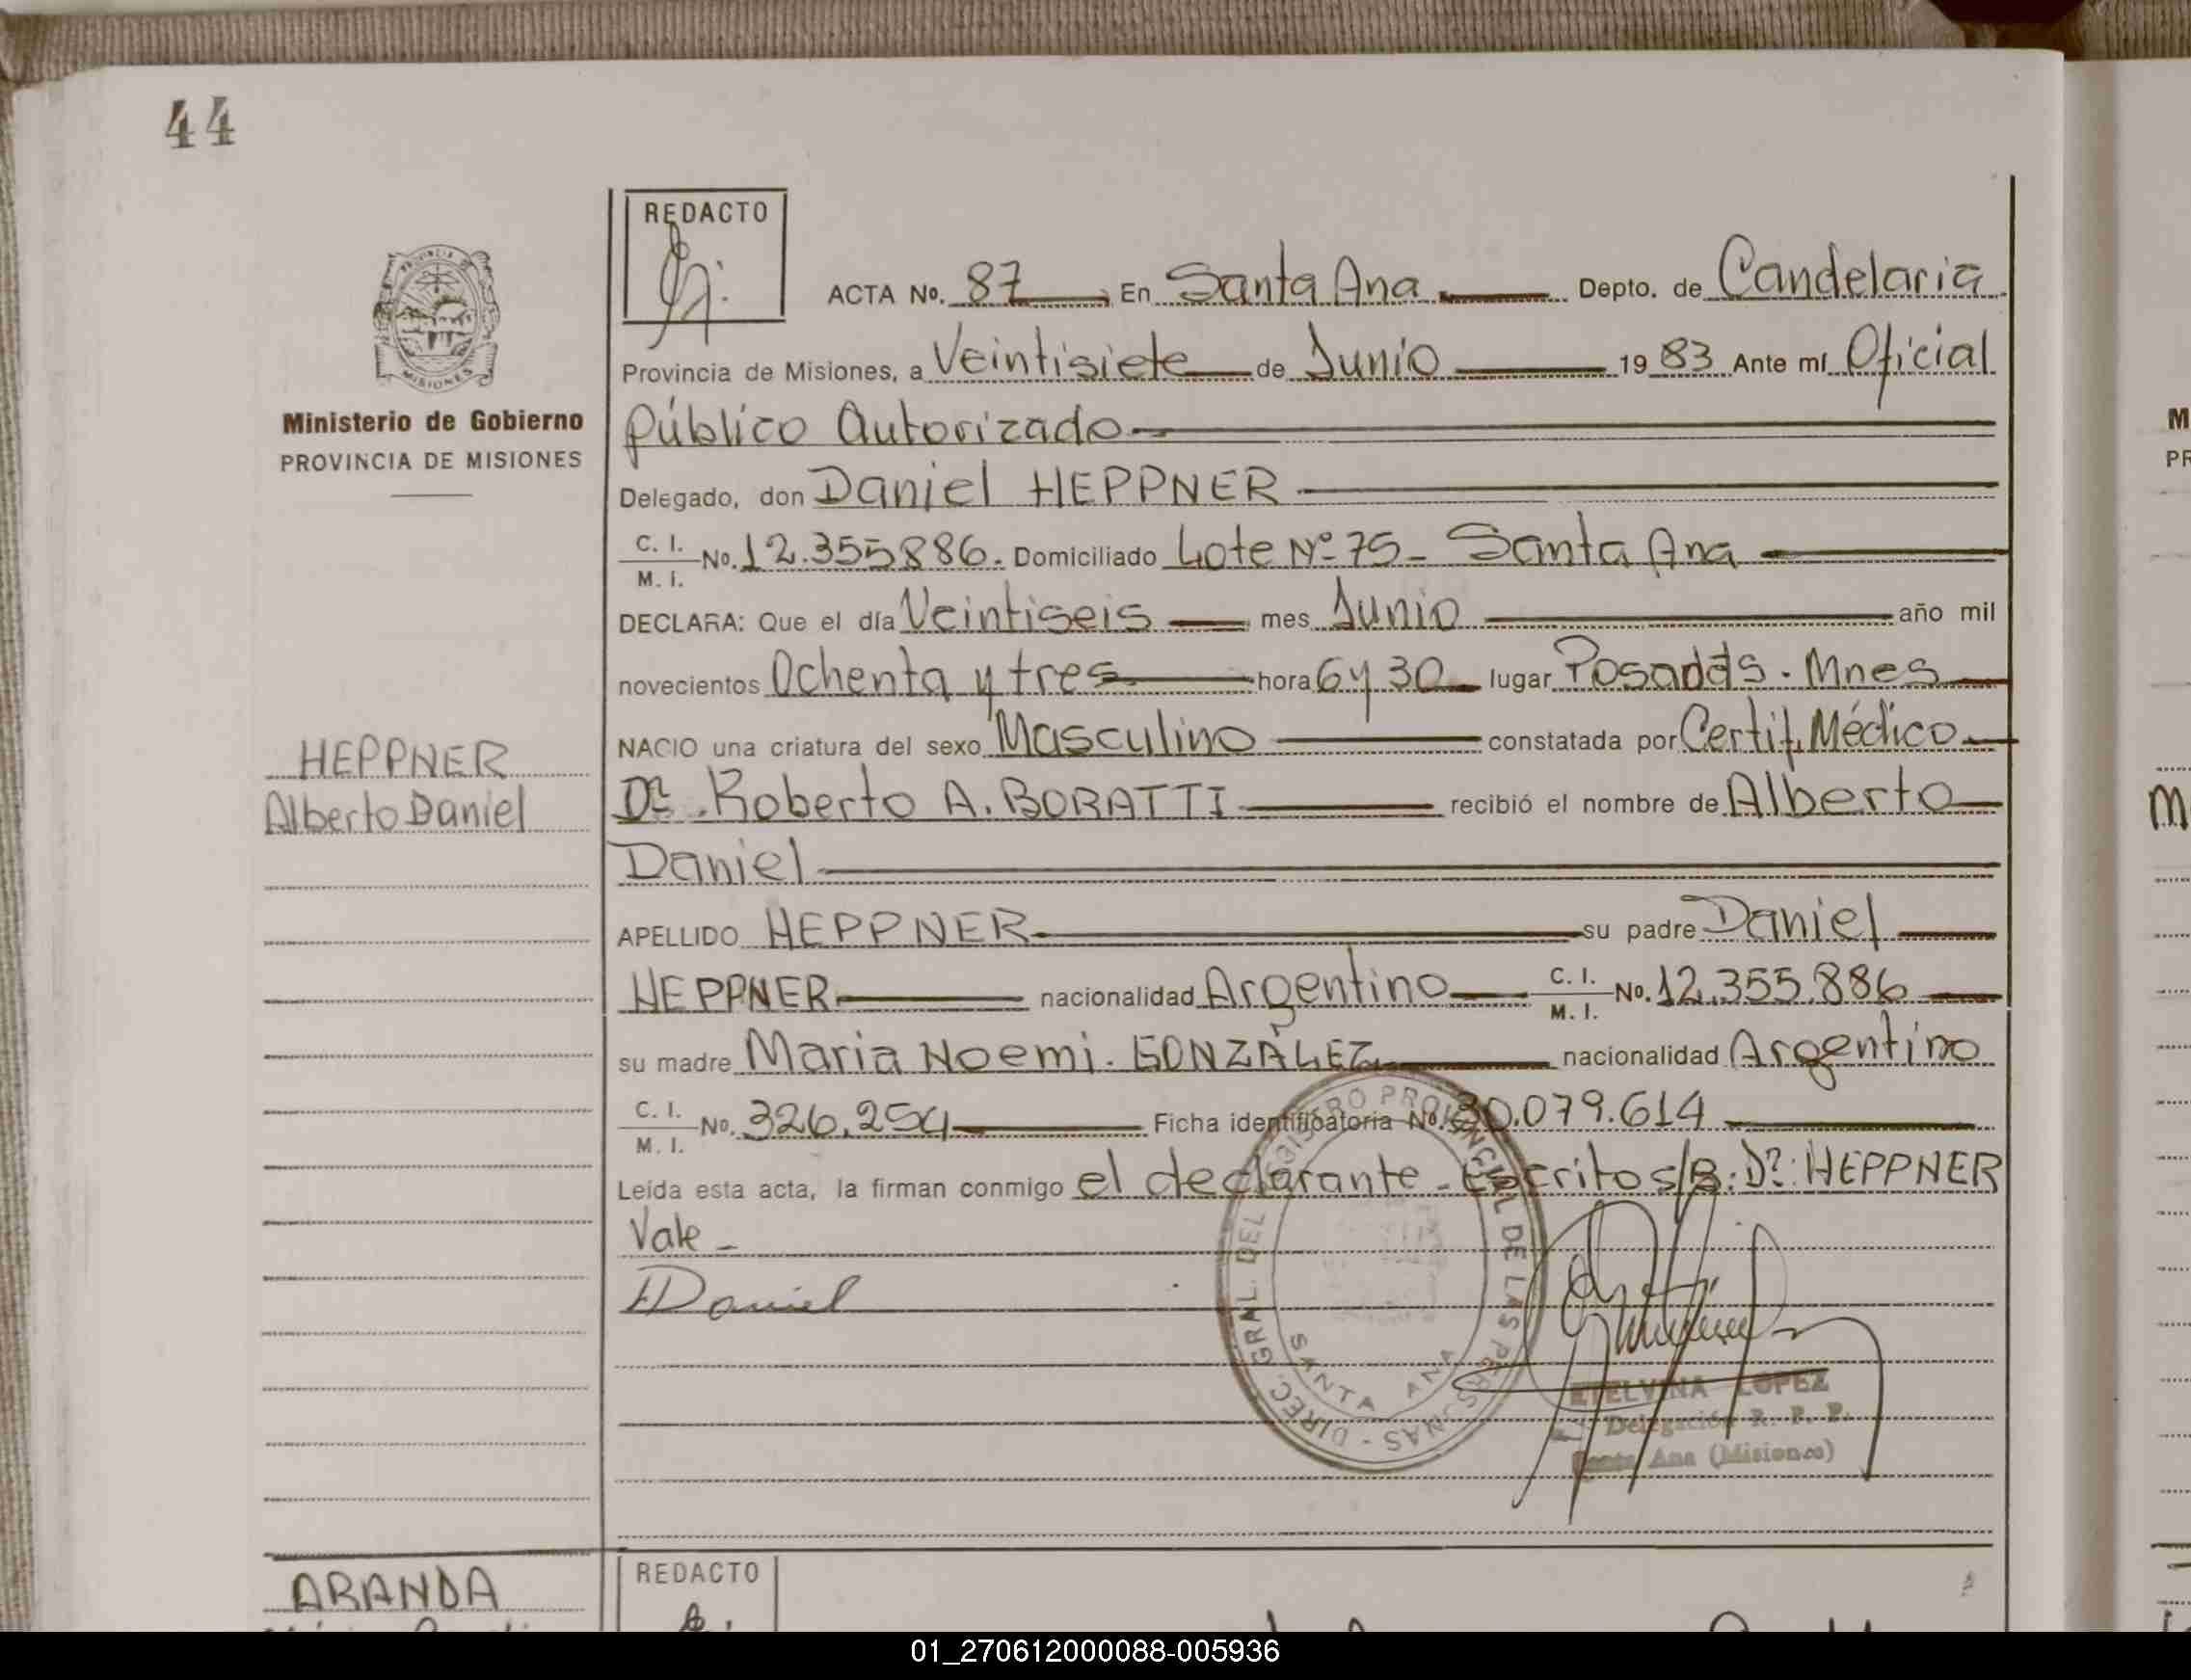 44
REDACTO
ACTA No. 87 En Santa Ana Depto. de Candelaria
Provincia de Misiones, a Veintisiete de Junio 1983 Ante mí Oficial
Ministerio de Gobierno
PROVINCIA DE MISIONES
Público Autorizado
Delegado, don Daniel HEPPNER
C. I. M. I. No. 12.355886. Domiciliado Lote Nº 75 - Santa Ana
DECLARA: Que el día Veintiseis mes Junio año mil
novecientos Ochenta y tres hora 6 y 30 lugar Posadas. Mnes
NACIO una criatura del sexo Masculino constatada por Certif. Médico
HEPPNER
Alberto Daniel
Dr. Roberto A. BORATTI recibió el nombre de Alberto
Daniel
APELLIDO HEPPNER su padre Daniel
HEPPNER nacionalidad Argentino C. I. M. I. No. 12.355.886
su madre Maria Noemi. GONZÁLEZ nacionalidad Argentino
C. I. M. I. No. 326.254 Ficha identificatoria No. 30.079.614
Leída esta acta, la firman conmigo el declarante - Escrito s/B: D?: HEPPNER
Vale -
Daniel
DIREC. GRAL. DEL REGISTRO PROVINCIAL DE LAS PERSONAS -
SANTA ANA
ETELVINA LOPEZ
Delegación R. P. P.
Santa Ana (Misiones)
ARANDA
REDACTO
01_270612000088-005936